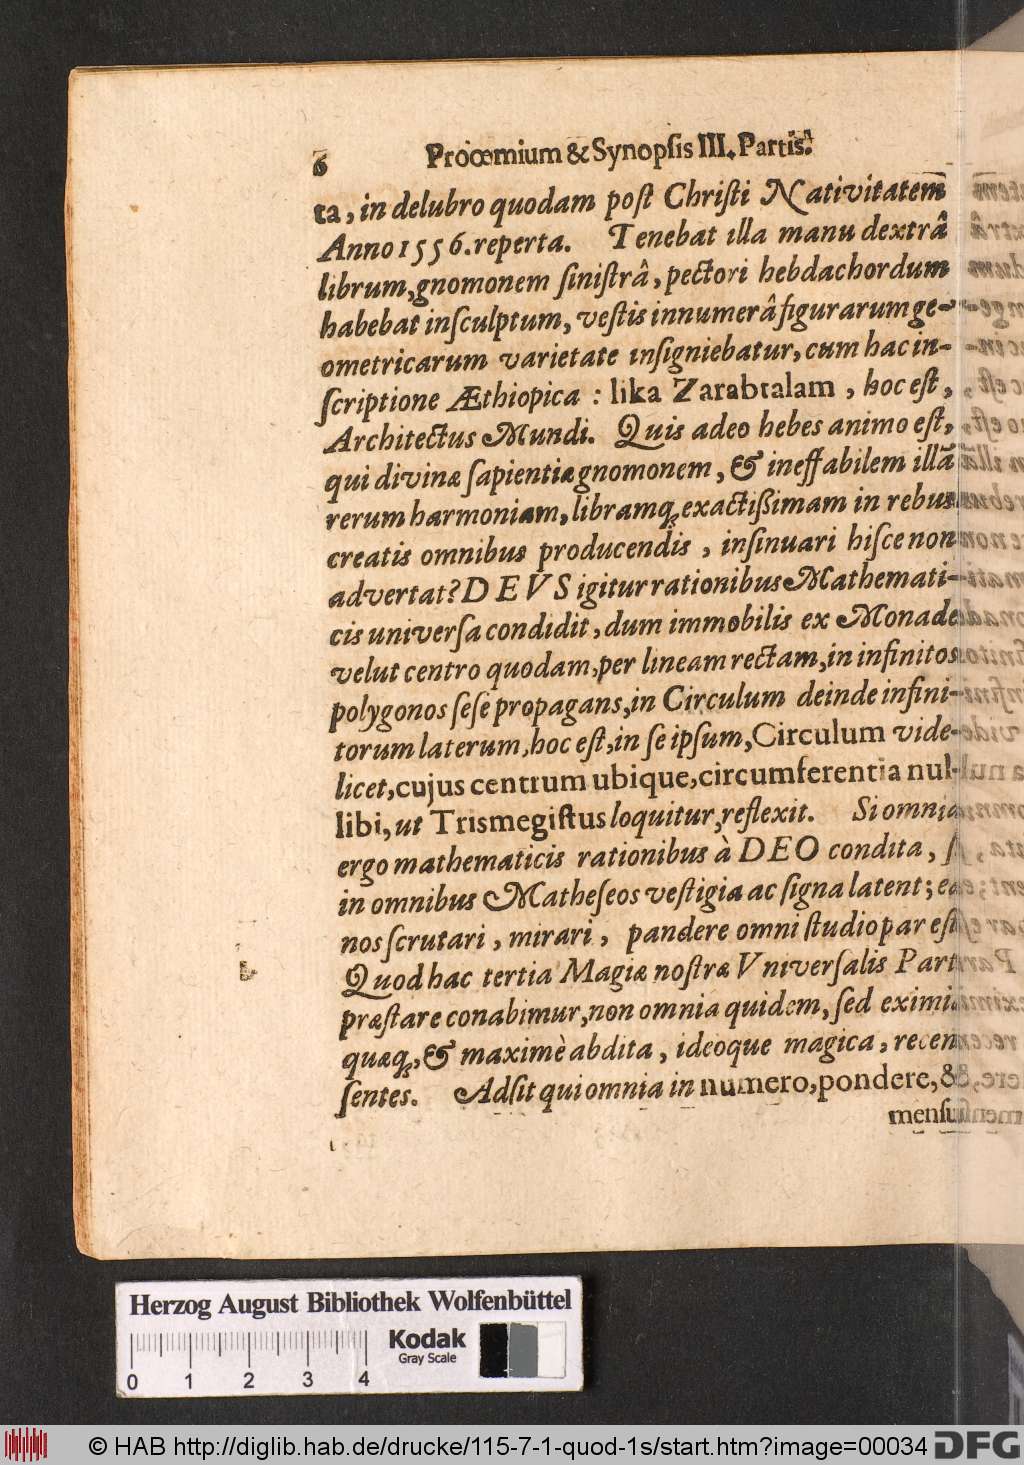 6 Proœmium & Synopſis III. Partis.
ta, in delubro quodam poſt Chriſti Nativitatem
Anno 1556. reperta. Tenebat illa manu dextrâ
librum, gnomonem ſiniſtrâ, pectori hebdachordum
habebat inſculptum, veſtis innumerâ figurarum ge-
ometricarum varietate inſigniebatur, cum hac in-
ſcriptione Æthiopica : lika Zarabtalam , hoc eſt,
Architectus Mundi. Quis adeo hebes animo eſt,
qui divinæ ſapientiæ gnomonem, & ineffabilem illā
rerum harmoniam, libramq; exactißimam in rebus
creatis omnibus producendis, inſinuari hiſce non
advertat? DEVS igitur rationibus Mathemati-
cis univerſa condidit, dum immobilis ex Monade
velut centro quodam, per lineam rectam, in infinitos
polygonos ſeſe propagans, in Circulum deinde infini-
torum laterum, hoc eſt, in ſe ipſum, Circulum vide-
licet, cujus centrum ubique, circumferentia nul-
libi, ut Trismegiſtus loquitur, reflexit. Si omnia
ergo mathematicis rationibus à DEO condita, ſi
in omnibus Matheſeos veſtigia ac ſigna latent; ea
nos ſcrutari, mirari, pandere omni ſtudio par eſt
Quod hac tertia Magiæ noſtræ Vniverſalis Part
præſtare conabimur, non omnia quidem, ſed eximia
quæq;, & maximè abdita, ideoque magica, recen
ſentes. Adſit qui omnia in numero, pondere, &
menſu
Herzog August Bibliothek Wolfenbüttel
Kodak
Gray Scale
0 1 2 3 4
© HAB http://diglib.hab.de/drucke/115-7-1-quod-1s/start.htm?image=00034 DFG